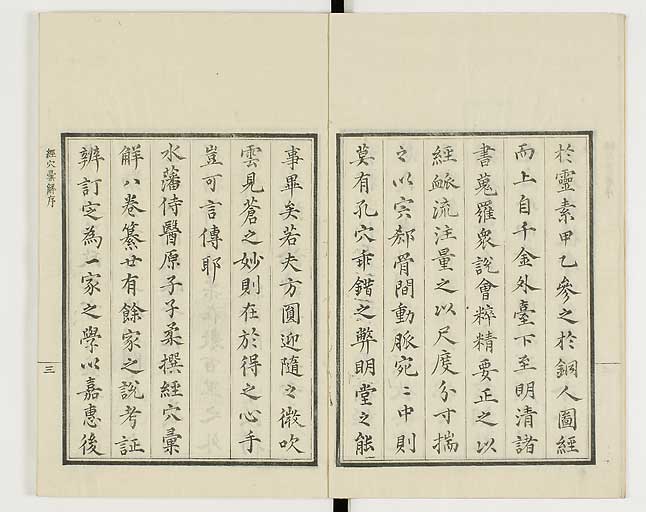 於靈素甲乙參之於銅人圖經
而上自千金外臺下至明清諸
書蒐羅衆說會粹精要正之以
經脈流注量之以尺度分寸揣
之以穴郄骨間動脈宛〻中則
莫有孔穴乖錯之弊明堂之能
事畢矣若夫方圓迎隨之微吹
雲見蒼之妙則在於得之心手
豈可言傳耶
水藩侍醫原子子柔撰經穴彙
解八卷纂廿有餘家之說考証
辨訂定為一家之學以嘉惠後
經穴彙解序
三